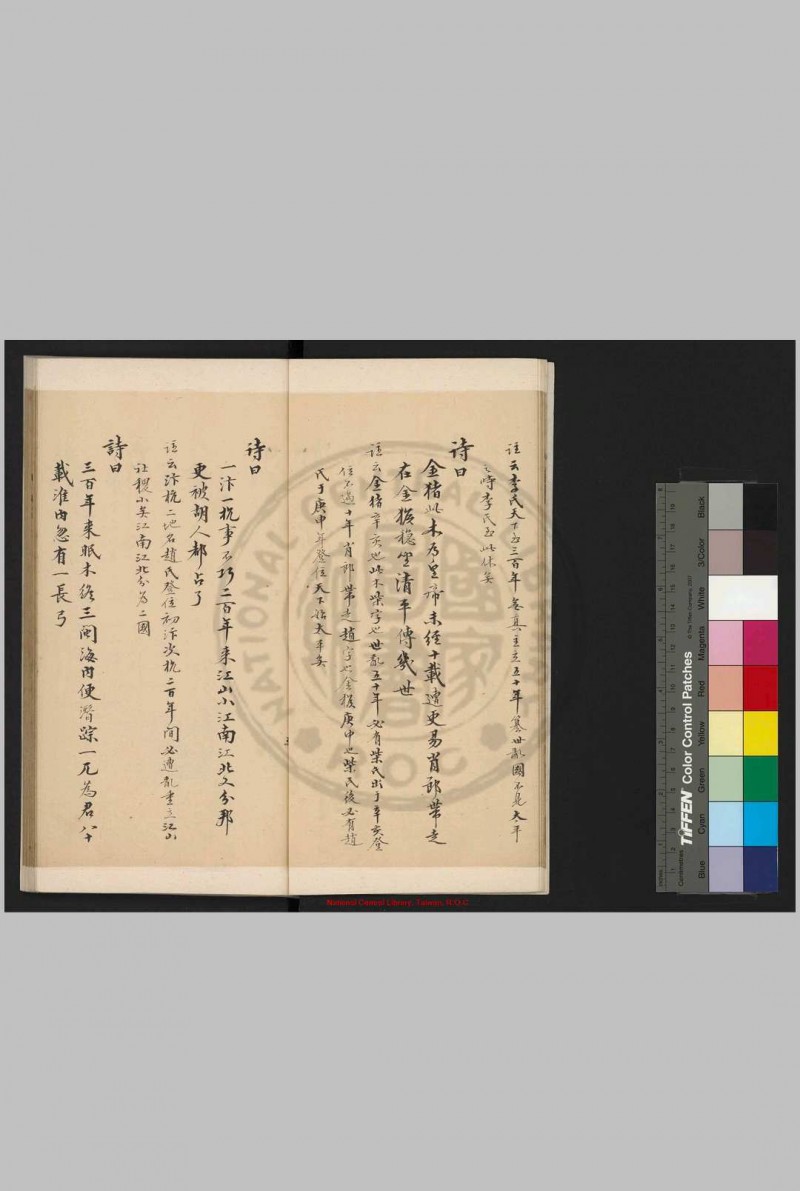 註云李氏天下至三百年無真主立五十年篡世亂國不見太平
之時李氏至此休矣
詩曰
金猪此木為皇帝未經十載遭更易肖郎帶走
在金猴穩坐清平傳幾世
註云金猪辛亥也此木柴字也世亂五十年必有柴氏出于辛亥登
位不過十年肖郎帶走趙字也金猴庚申也柴氏後必有趙
氏于庚申年登位天下治太平矣
詩曰
一汴一杭事不巧二百年来江山小江南江北又分邦
更被胡人都占了
註云汴杭二地名趙氏登位初汴次杭二百年間必遭亂重立江山
社稷小矣江南江北分為二國
詩曰
三百年来眠木終三閭海内便潛踪一兀為君八十
載淮内忽有一長弓
NATIONAL CENTRAL LIBRARY R.O.C.
國家
National Central Library, Taiwan, R.O.C
TIFFEN Color Control Patches
© The Tiffen Company, 2007
Centimetres
Inches
Blue
Cyan
Green
Yellow
Red
Magenta
White
3/Color
Black